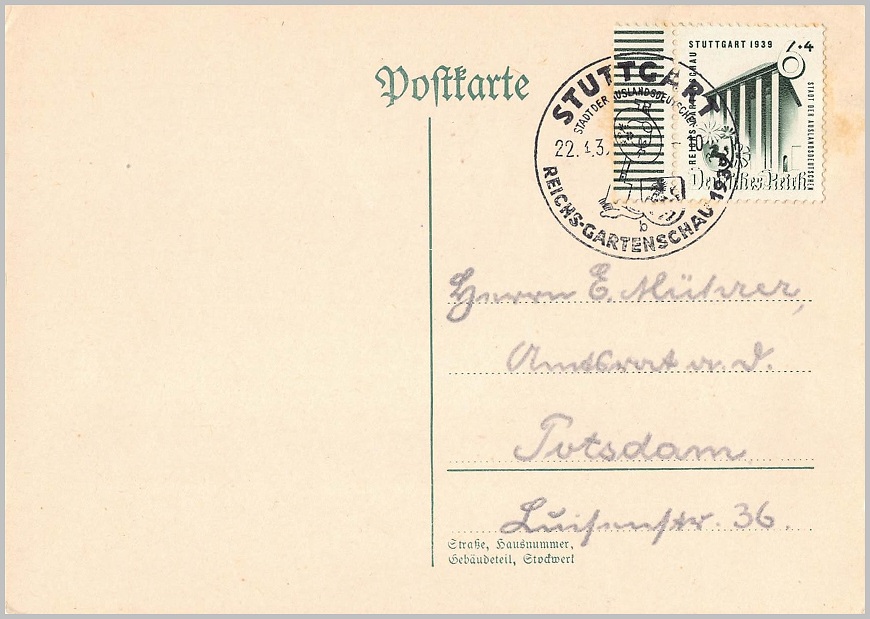 Postkarte
STUTTGART 1939
6+4
REICHSGARTENSCHAU
STADT DER AUSLANDSDEUTSCHEN
Deutsches Reich
STUTTGART
STADT DER AUSLANDSDEUTSCHEN
22.4.3
10
b
REICHS-GARTENSCHAU 1939
Herrn E. Mührer,
Amtsrat a. D.
Potsdam
Luisenstr. 36.
Straße, Hausnummer,
Gebäudeteil, Stockwerk